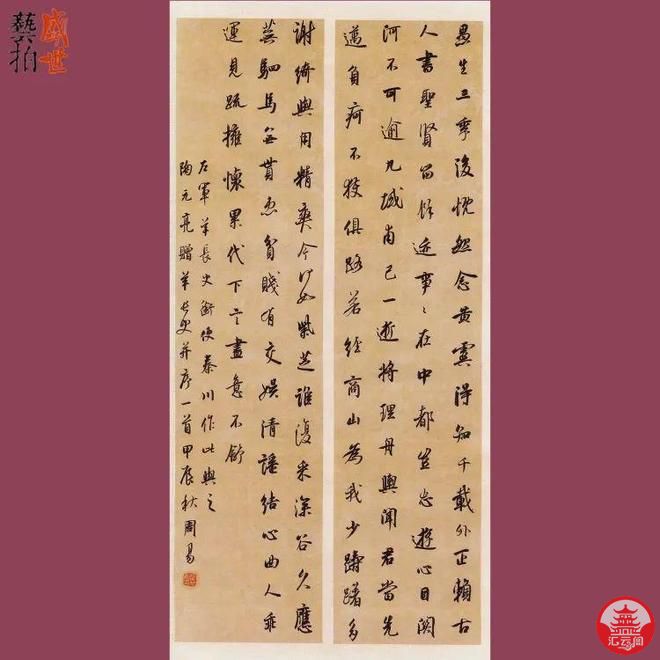 盛世
藝拍
愚生三季後慨然念黃虞得知千載外正賴古
人書聖賢留餘迹事々在中都豈忘遊心目関
河不可逾九域甫已一逝將理舟輿聞君當先
邁負疴不獲俱路若經商山為我少躊躇多
謝綺與甪精爽今何如紫芝誰復采深谷久應
蕪駟馬无貰患貧賤有交娛清謠結心曲人乖
運見疏擁懷累代下言盡意不舒
左軍羊長史銜使秦川作此與之
陶元亮贈羊長史并序一首甲辰秋周易
汇云阁